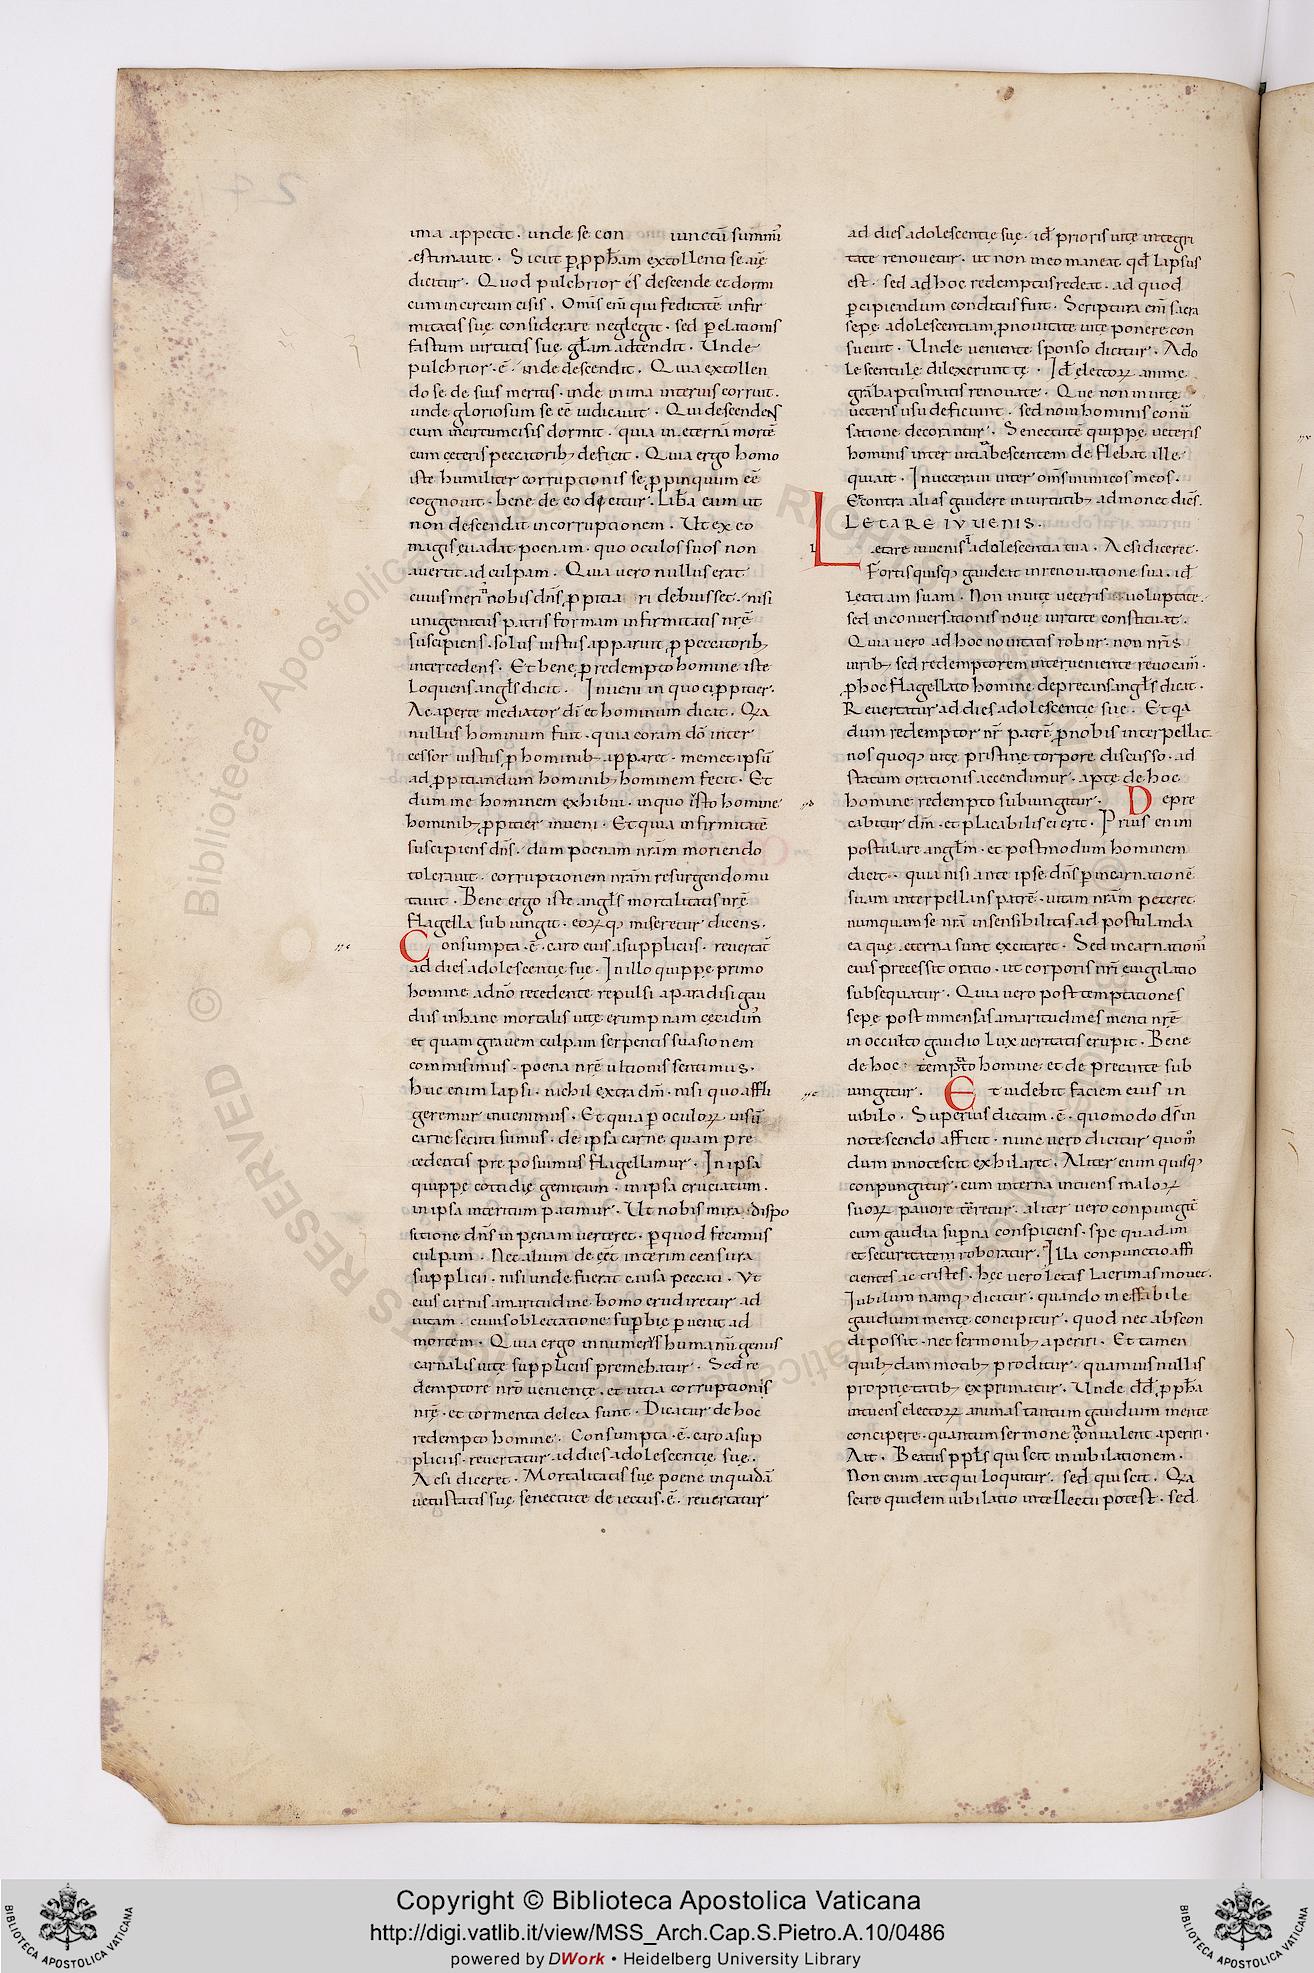 ima appetit . unde se con iunctū summū
estimavit . Sicut p̱ p̱ph̄am extollenti se aīę
dicitur . Quod pulchrior es descende et dormi
cum incircumcisis . Om̄s eni̅ qui fęditatē infir
mitatis suę considerare neglegit . sed p̱ elationis
fastum virtutis suę gl̄am adtendit . Unde
pulchrior . ē . inde descendit . Quia extollen
do se de suis meritis . inde in ima interius corruit .
unde gloriosum se eē iudicavit . Qui descendens
cum incircumcisis dormit . quia in eternā mortē
cum ceteris peccatorib; deficit . Quia ergo homo
iste humiliter corruptionis se p̱pinquum eē
cognovit . bene de eo dicitur . Libera eum ut
non descendat in corruptionem . Ut ex eo
magis evadat poenam . quo oculos suos non
avertit ad culpam . Quia vero nullus erat
cuius meritis nobis dn̄s p̱pitiari debuisset . nisi
unigenitus patris formam infirmitatis nr̄ę
suscipiens . solus iustus apparuit . p̱ peccatorib;
intercedens . Et bene p̱ redempto homine iste
loquens angl̄s dicit . Inveni in quo ei p̱pitier .
Ac aperte mediator dī et hominum dicat . Q̄a
nullus hominum fuit . qui a coram dō inter
cessor iustus p̱ hominib; apparet . memet ipsū
ad p̱pitiandum hominib; hominem feci . Et
dum me hominem exhibui . in quo isto homine
hominib; p̱pitier inveni . Et quia infirmitatē
suscipiens dn̄s . dum poenam nr̄am moriendo
toleravit . corruptionem nr̄am resurgendo mu
tavit . Bene ergo iste angl̄s mortalitatis nr̄ę
flagella subiungit . eorq; miseretur dicens .
Consumpta . ē . caro eius a suppliciis . revertat̄
ad dies adolescentię suę . In illo quippe primo
homine a dn̄o recedente repulsi a paradisi gau
diis in hanc mortalis vitę erumpnam cecidim̄
et quam gravem culpam serpentis suasionem
commisimus . poena nr̄ę ultionis sentimus .
huc enim lapsi . nichil extra dm̄ . nisi quo affli
geremur invenimus . Et quia p̱ oculoꝝ visū
carnē secuti sumus . de ipsa carne quam pre
cedentis preposuimus flagellamur . In ipsa
quippe cottidię gemitum . in ipsa cruciatum .
in ipsa interitum patimur . Ut nobis mira dispo
sitione dn̄s in pęnam verteret . p̱ quod fecimus
culpam . Nec aliunde eēt interim censura
supplicii . nisi unde fuerat causa peccati . Ut
eius carnis amaritudine homo erudiretur ad
vitam . cuius oblectatione sup̱bię p̱venit ad
mortem . Quia ergo innumeris humanū genus
carnalis vitę suppliciis premebatur . Sed re
demptore nr̄o veniente . et vitia corruptionis
nr̄ę . et tormenta deleta sunt . Dicatur de hoc
redempto homine . Consumpta . ē . caro a sup
pliciis . revertatur ad dies adolescentię suę .
Ac si diceret . Mortalitatis suę poene inquadā
vetustatis suę senectute deiectus . ē . revertatur
ad dies adolescentię suę . id̄ prioris vitę integri
tate renovetur . ut non in eo maneat qd̄ lapsus
est . sed ad hoc redemptus redeat . ad quod
p̱cipiendum conditus fuit . Scriptura eni̅ sacra
sępe adolescentiam p̱ novitate vitę ponere con
suevit . Unde veniente sponso dicitur . Ado
lescentulę dilexerunt te . Id̄ electoꝝ animę
grā baptismatis renovatę . Que non in vitę
veteris usu deficiunt . sed novi hominis conv̄
satione decorantur . Senectutē quippe veteris
hominis inter vitia tabescentem deflebat ille
qui ait . Inveteravi inter om̄s inimicos meos .
Et contra alias gaudere in virtutib; admonet dicēs .
LETARE IUVENIS .
Letare iuvenis in adolescentia tua . Ac si diceret .
Fortis quisq; gaudeat in renovatione sua . id̄
letitiam suam . Non in vitę veteris voluptate .
sed in conversationis novę virtute constituat .
Quia vero ad hoc novitatis robur . non nr̄is
virib; sed redemptorem interveniente revocam̄ .
p̱ hoc flagellato homine deprecans angl̄s dicat .
Revertatur ad dies adolescentię suę . Et q̄a
dum redemptor nr̄ patrē p̱ nobis interpellat .
nos quoq; vitę pristinę torpore discusso . ad
statum orationis accendimur . apte de hoc
homine redempto subiungitur . Depre
cabitur dm̄ . et placabilis ei erit . Prius enim
postulare angl̄m . et postmodum hominem
dicit . quia nisi ante ipse dn̄s p̱ incarnationē
suam interpellans patrē . vitam nr̄am peteret
numquam se nr̄a insensibilitas ad postulanda
ea quę eterna sunt excitaret . Sed incarnationē
eius precessit oratio . ut corporis nr̄i evigilatio
subsequatur . Quia vero post temptationes
sępe post immensas amaritudines menti nr̄ę
in occulto gaudio lux veritatis erupit . Bene
de hoc temptato homine et deprecante sub
iungitur . Et videbit faciem eius in
iubilo . Superius dictum . ē . quomodo ds̄ in
notescendo afficit . nunc vero dicitur quom̄
dum innotescit exhilaret . Aliter enim quisq;
conpungitur . cum interna intuens maloꝝ
suoꝝ pavore terretur . aliter vero conpungit̄
cum gaudia sup̱na conspiciens . spe quadam
et securitatem roboratur . Illa conpunctio affi
cientes ac tristes . hęc vero lętas lacrimas movet .
Iubilum namq; dicitur . quando ineffabile
gaudium mente concipitur . quod nec abscon
di possit . nec sermonib; aperiri . Et tamen
quib;dam motib; proditur . quamvis nullis
proprietatib; exprimatur . Unde dd̄ p̱ph̄a
intuens electoꝝ animas tantum gaudium mente
concipere . quantum sermone non valent aperiri .
Ait . Beatus ppl̄s qui scit iubilationem .
Non enim ait qui loquitur . sed qui scit . Q̄a
scire quidem iubilatio intellectu potest . sed
Copyright © Biblioteca Apostolica Vaticana
http://digi.vatlib.it/view/MSS_Arch.Cap.S.Pietro.A.10/0486
powered by DWork • Heidelberg University Library